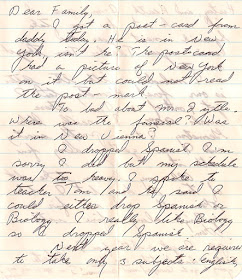 Dear Family,
I got a post-card from
daddy today. He is in New
York, isn't he? The postcard
had a picture of New York
on it but could not read
the post-mark.
Too bad about Mr.
Where was the funeral? Was
it in New Vienna?
I dropped Spanish. I'm
sorry I did but my schedule
was too heavy. I spoke to
teacher Tom and he said I
could either drop Spanish or
Biology. I really like Biology
so I dropped Spanish.
Next year we are required
to take only 3 subjects: English,